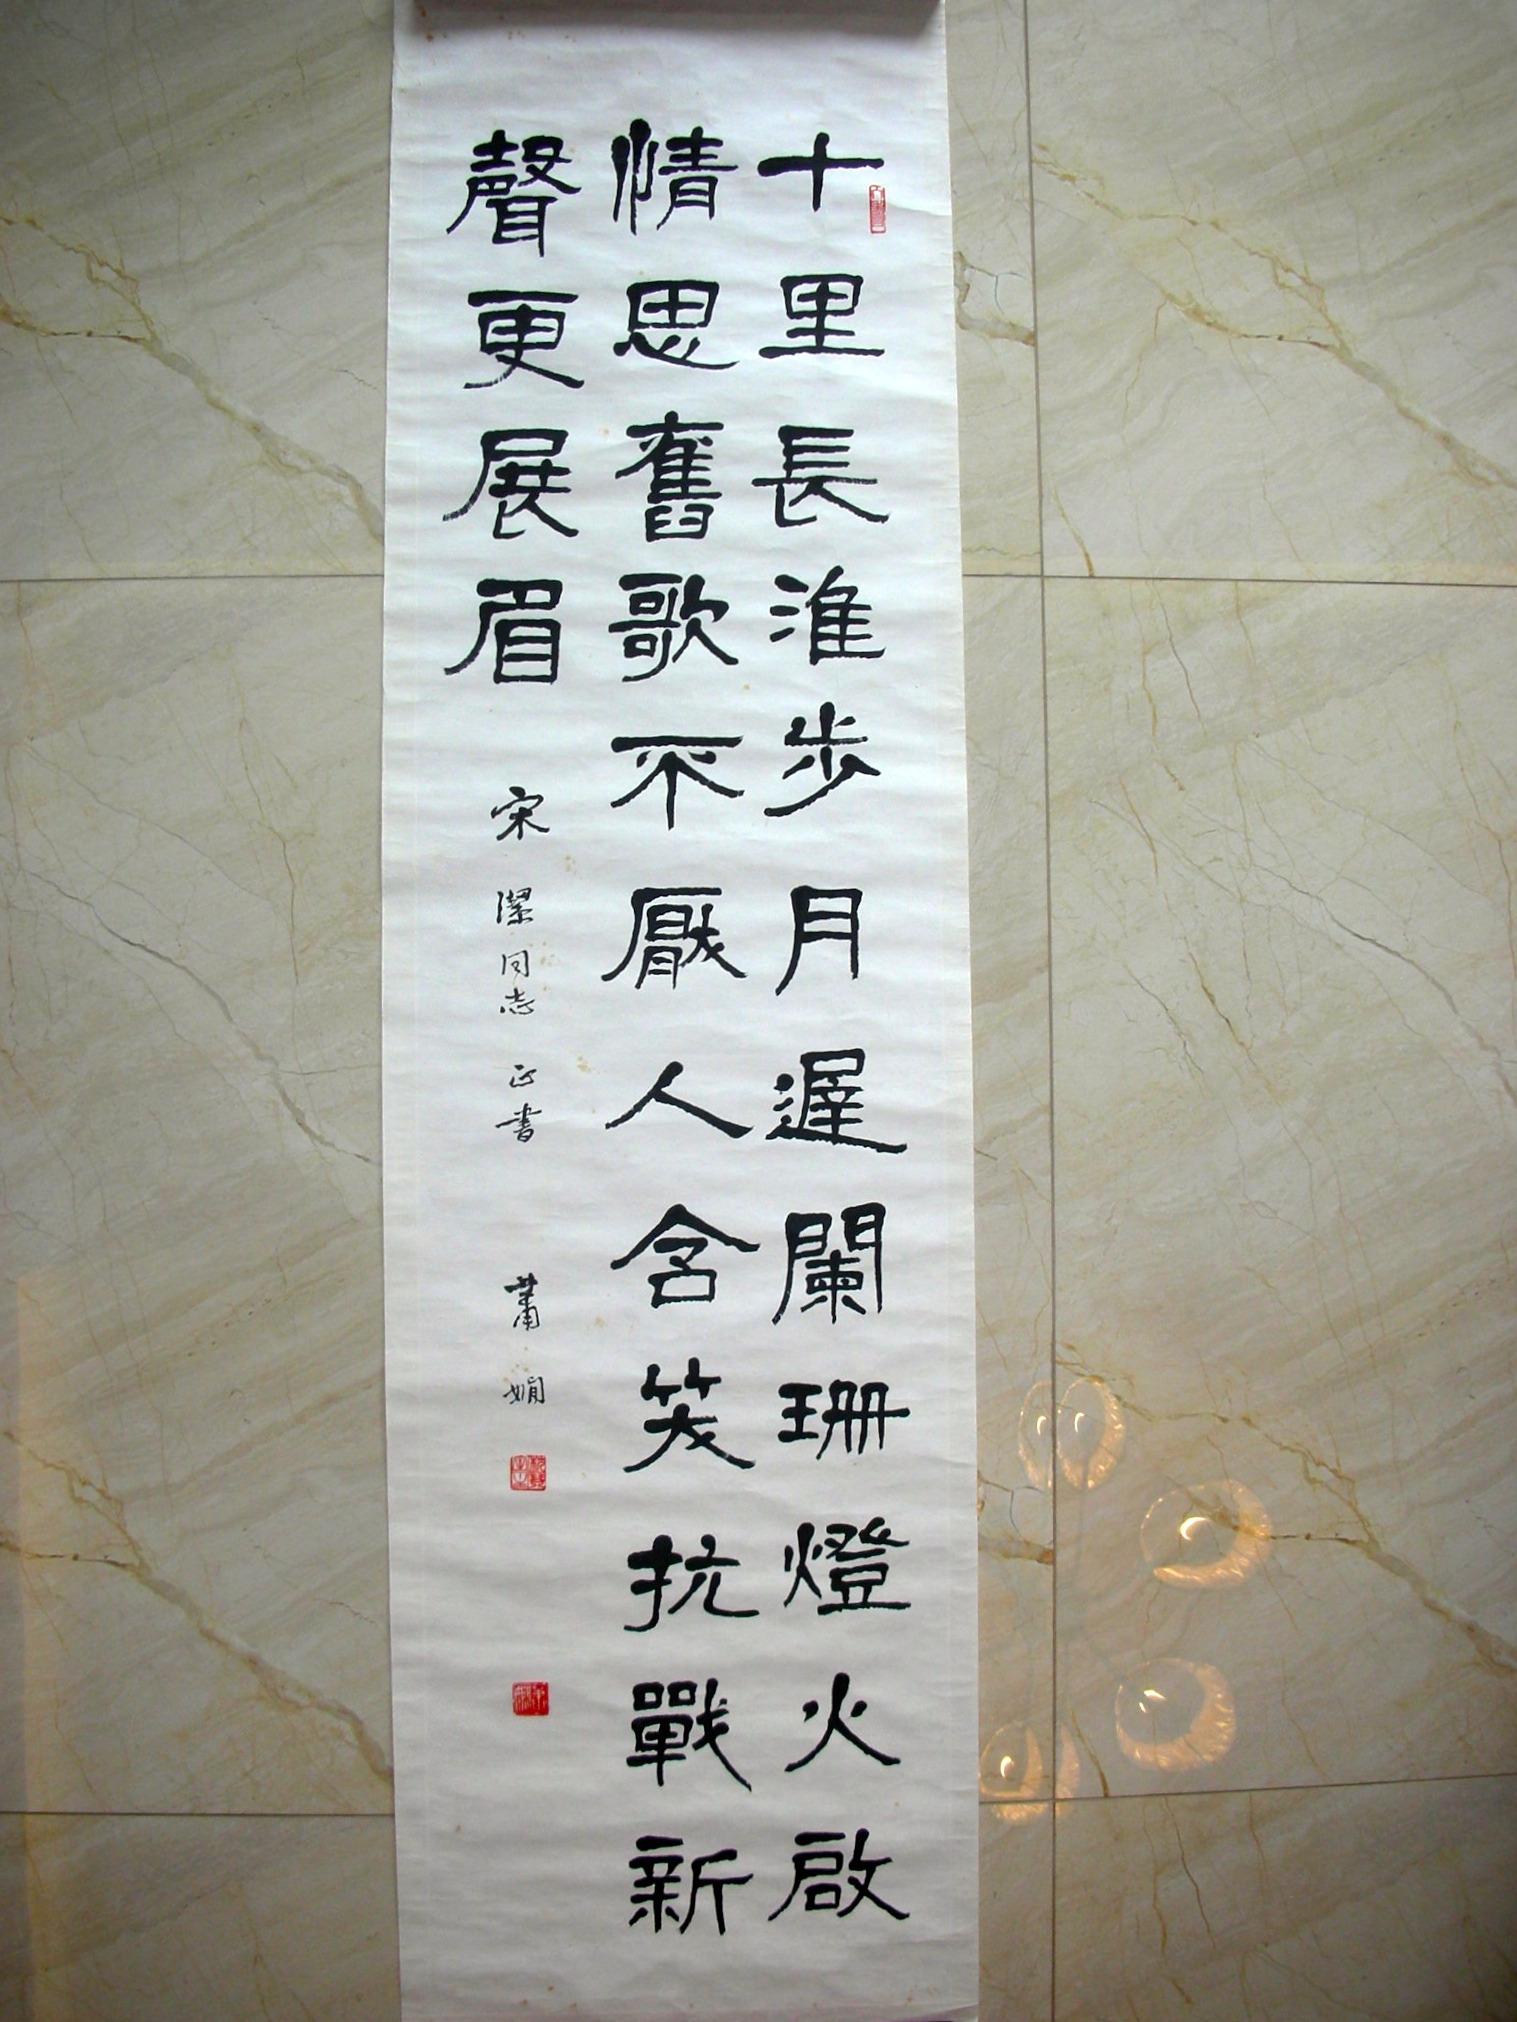 十里長淮步月遲闌珊燈火啟
情思舊歌不厭人含笑抗戰新
聲更展眉
宋潔同志正書
蕭嫻